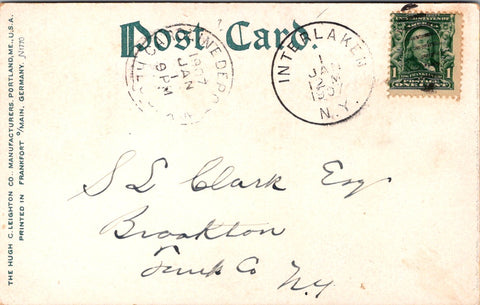 Post Card.
CANANDE DEPO
1907
JAN
1
9 PM
INTERLAKEN
1
JAN
2
1907
N.Y.
1
ONE CENT
S L Clark Esq
Brookton
Co N.Y.
THE HUGH C. LEIGHTON CO., MANUFACTURERS, PORTLAND, ME., U.S.A.
PRINTED IN FRANKFORT o/MAIN, GERMANY.